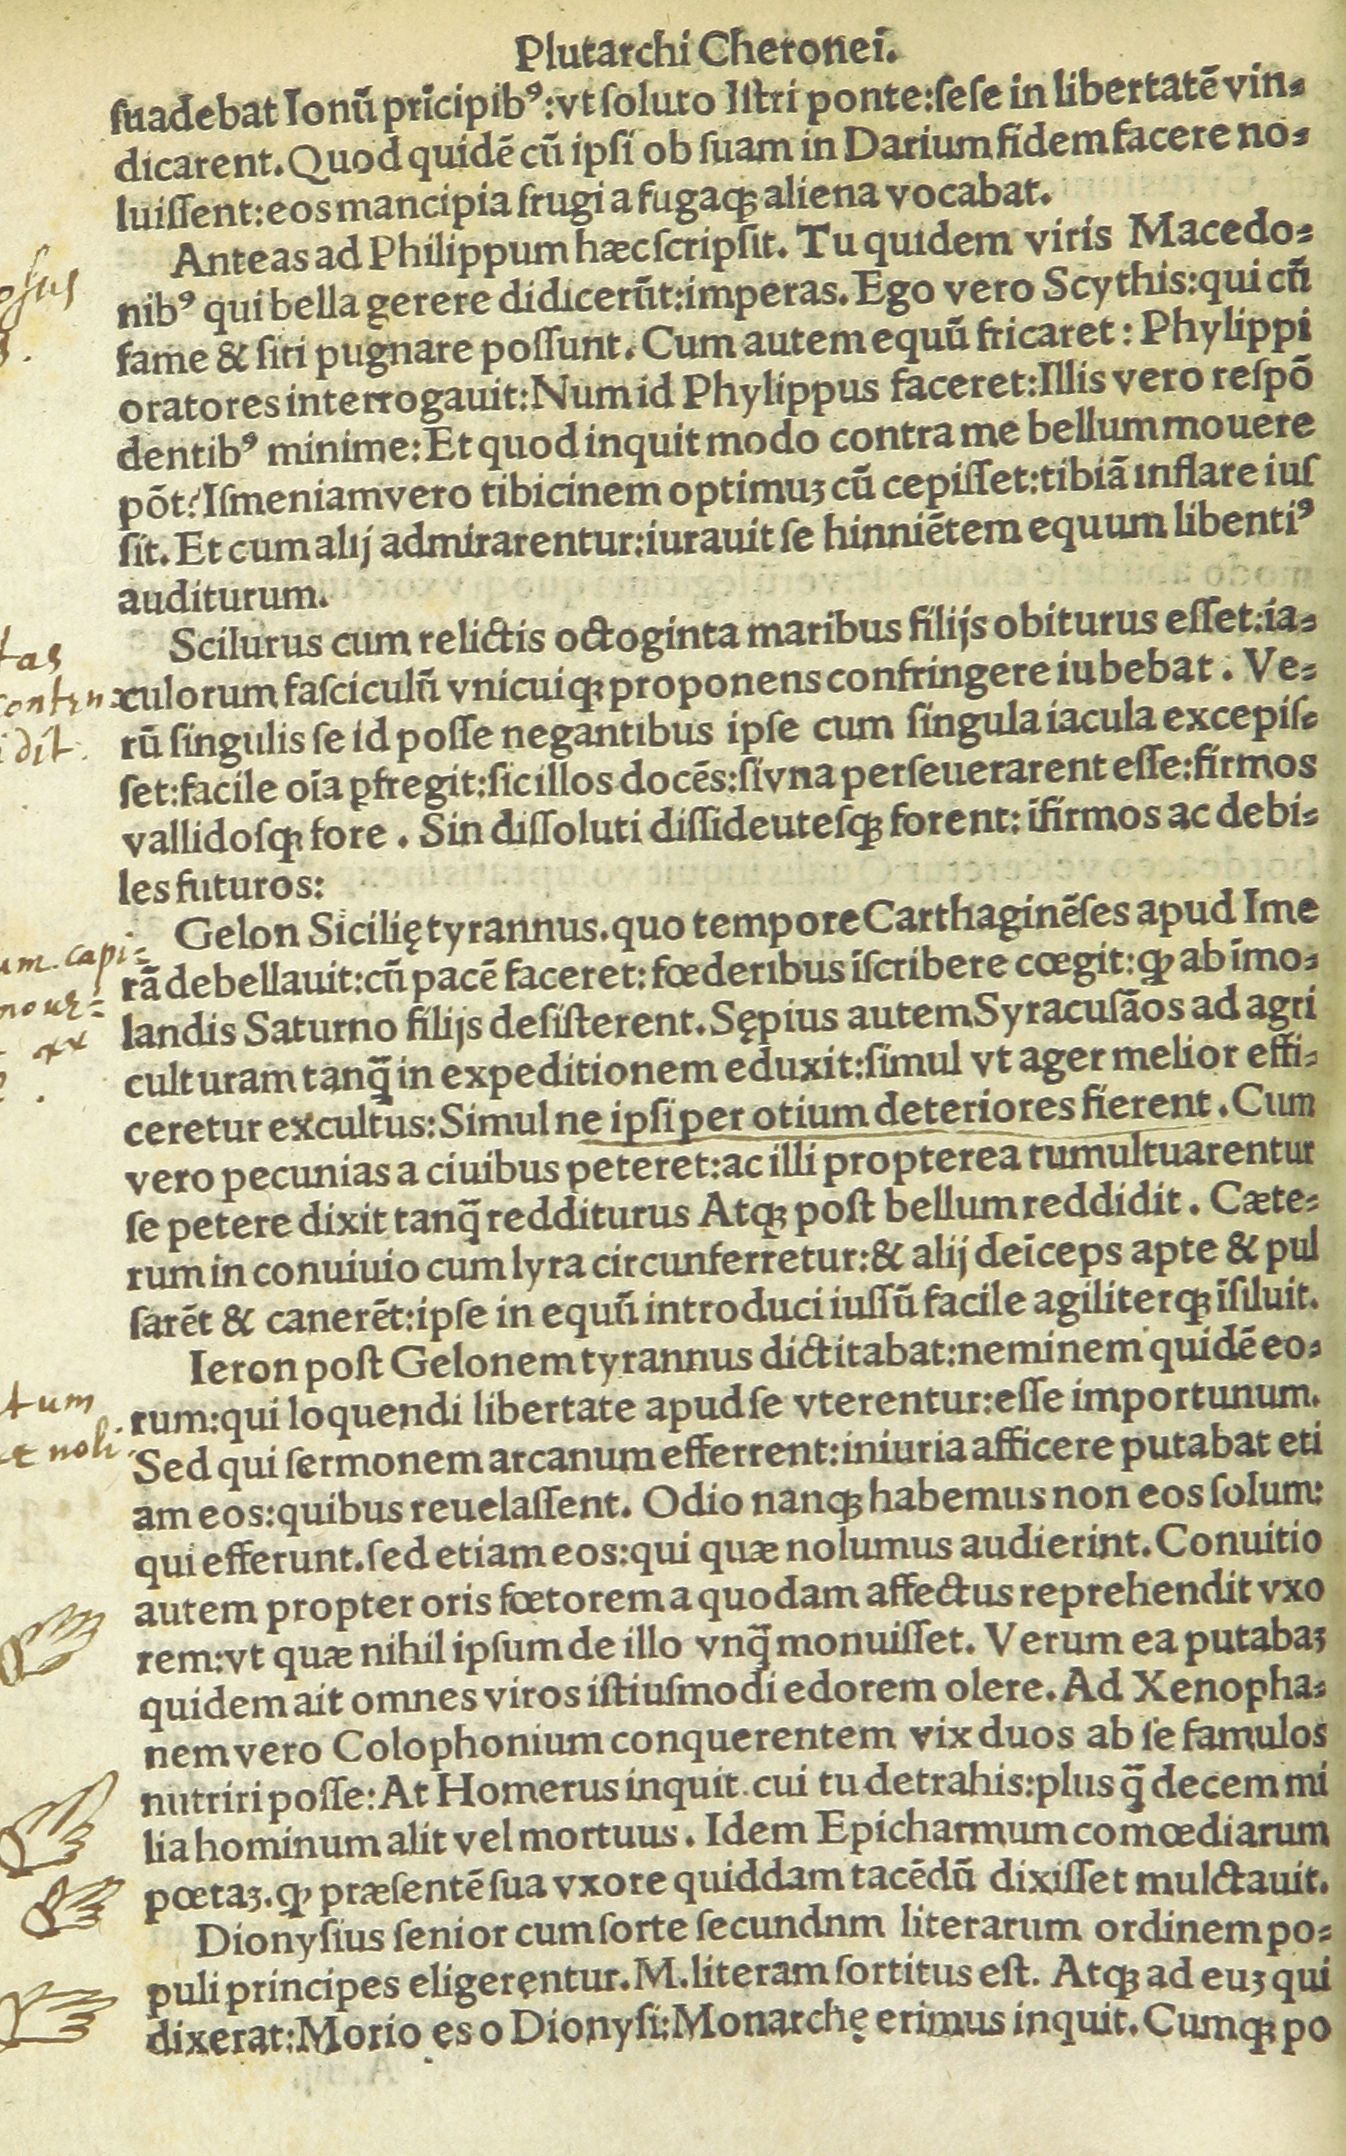 Plutarchi Cheroneī.
ſuadebat Ionū prīcipibꝰ:vt ſoluto Iſtri ponte:ſeſe in libertatē vin-
dicarent. Quod quidē cū ipſi ob ſuam in Darium fidem facere no-
luiſſent:eos mancipia frugi a fugaqꝫ aliena vocabat.
Anteas ad Philippum hæc ſcripſit. Tu quidem viris Macedo-
nibꝰ qui bella gerere didicerūt:imperas. Ego vero Scythis:qui cū
fame & ſiti pugnare poſſunt. Cum autem equū fricaret: Phylippi
oratores interrogauit: Num id Phylippus faceret: Illis vero reſpō
dentibꝰ minime: Et quod inquit modo contra me bellum mouere
pōt? Iſmeniam vero tibicinem optimuꝫ cū cepiſſet:tibiā inflare iuſ
ſit. Et cum alij admirarentur:iurauit ſe hinniētem equum libentiꝰ
auditurum.
Scilurus cum relictis octoginta maribus filijs obiturus eſſet:ia-
culorum faſciculū vnicuiqꝫ proponens confringere iubebat. Ve-
rū ſingulis ſe id poſſe negantibus ipſe cum ſingula iacula excepiſ-
ſet:facile oīa ꝑfregit:ſic illos docēs:ſi vna perſeuerarent eſſe:firmos
vallidoſqꝫ fore. Sin diſſoluti diſſideuteſqꝫ forent: īfirmos ac debi-
les futuros:
Gelon Sicilię tyrannus. quo tempore Carthaginēſes apud Ime
rā debellauit:cū pacē faceret: fœderibus īſcribere cœgit:ꝙ ab īmo-
landis Saturno filijs deſiſterent. Sępius autem Syracuſāos ad agri
culturam tanq̄ in expeditionem eduxit:ſimul vt ager melior effi-
ceretur excultus: Simul ne ipſi per otium deteriores fierent. Cum
vero pecunias a ciuibus peteret:ac illi propterea tumultuarentur
ſe petere dixit tanq̄ redditurus Atqꝫ poſt bellum reddidit. Cæte-
rum in conuiuio cum lyra circunferretur:& alij deīceps apte & pul
ſarēt & canerēt:ipſe in equū introduci iuſſū facile agiliterqꝫ īſiluit.
Ieron poſt Gelonem tyrannus dictitabat:neminem quidē eo-
rum:qui loquendi libertate apud ſe vterentur:eſſe importunum.
Sed qui ſermonem arcanum efferrent:iniuria afficere putabat eti
am eos:quibus reuelaſſent. Odio nanqꝫ habemus non eos ſolum:
qui efferunt. ſed etiam eos:qui quæ nolumus audierint. Conuitio
autem propter oris fœtorem a quodam affectus reprehendit vxo
rem:vt quæ nihil ipſum de illo vnq̄ monuiſſet. Verum ea putabaꝫ
quidem ait omnes viros iſtiuſmodi edorem olere. Ad Xenopha-
nem vero Colophonium conquerentem vix duos ab ſe famulos
nutriri poſſe: At Homerus inquit cui tu detrahis:plus q̄ decem mi
lia hominum alit vel mortuus. Idem Epicharmum comœdiarum
poetaꝫ. ꝙ præſentē ſua vxore quiddam tacēdū dixiſſet mulctauit.
Dionyſius ſenior cum ſorte ſecundnm literarum ordinem po-
puli principes eligeręntur. M. literam ſortitus eſt. Atqꝫ ad euꝫ qui
dixerat: Morio es o Dionyſi: Monarchę erimus inquit. Cumqꝫ po
tas
idit.
um. capi-
tum
et noli